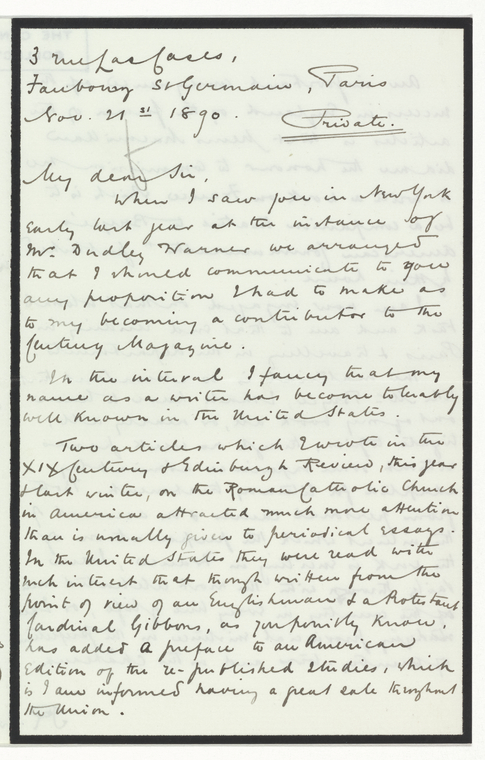 3 rue Las Cases,
Faubourg St Germain, Paris
Nov. 21st 1890. Private.
My dear Sir,
When I saw you in New York
early last year at the instance of
Mr. Dudley Warner we arranged
that I should communicate to you
any proposition I had to make as
to my becoming a contributor to the
Century Magazine.
In the interval I fancy that my
name as a writer has become tolerably
well known in the United States.
Two articles which I wrote in the
XIX Century & Edinburgh Review, this year
& last winter, on the Roman Catholic Church
in America attracted much more attention
than is usually given to periodical essays.
In the United States they were read with
such interest that though written from the
point of view of an Englishman & a Protestant
Cardinal Gibbons, as you possibly know,
has added a preface to an American
Edition of the re-published Studies, which
is I am informed having a great sale throughout
the Union.